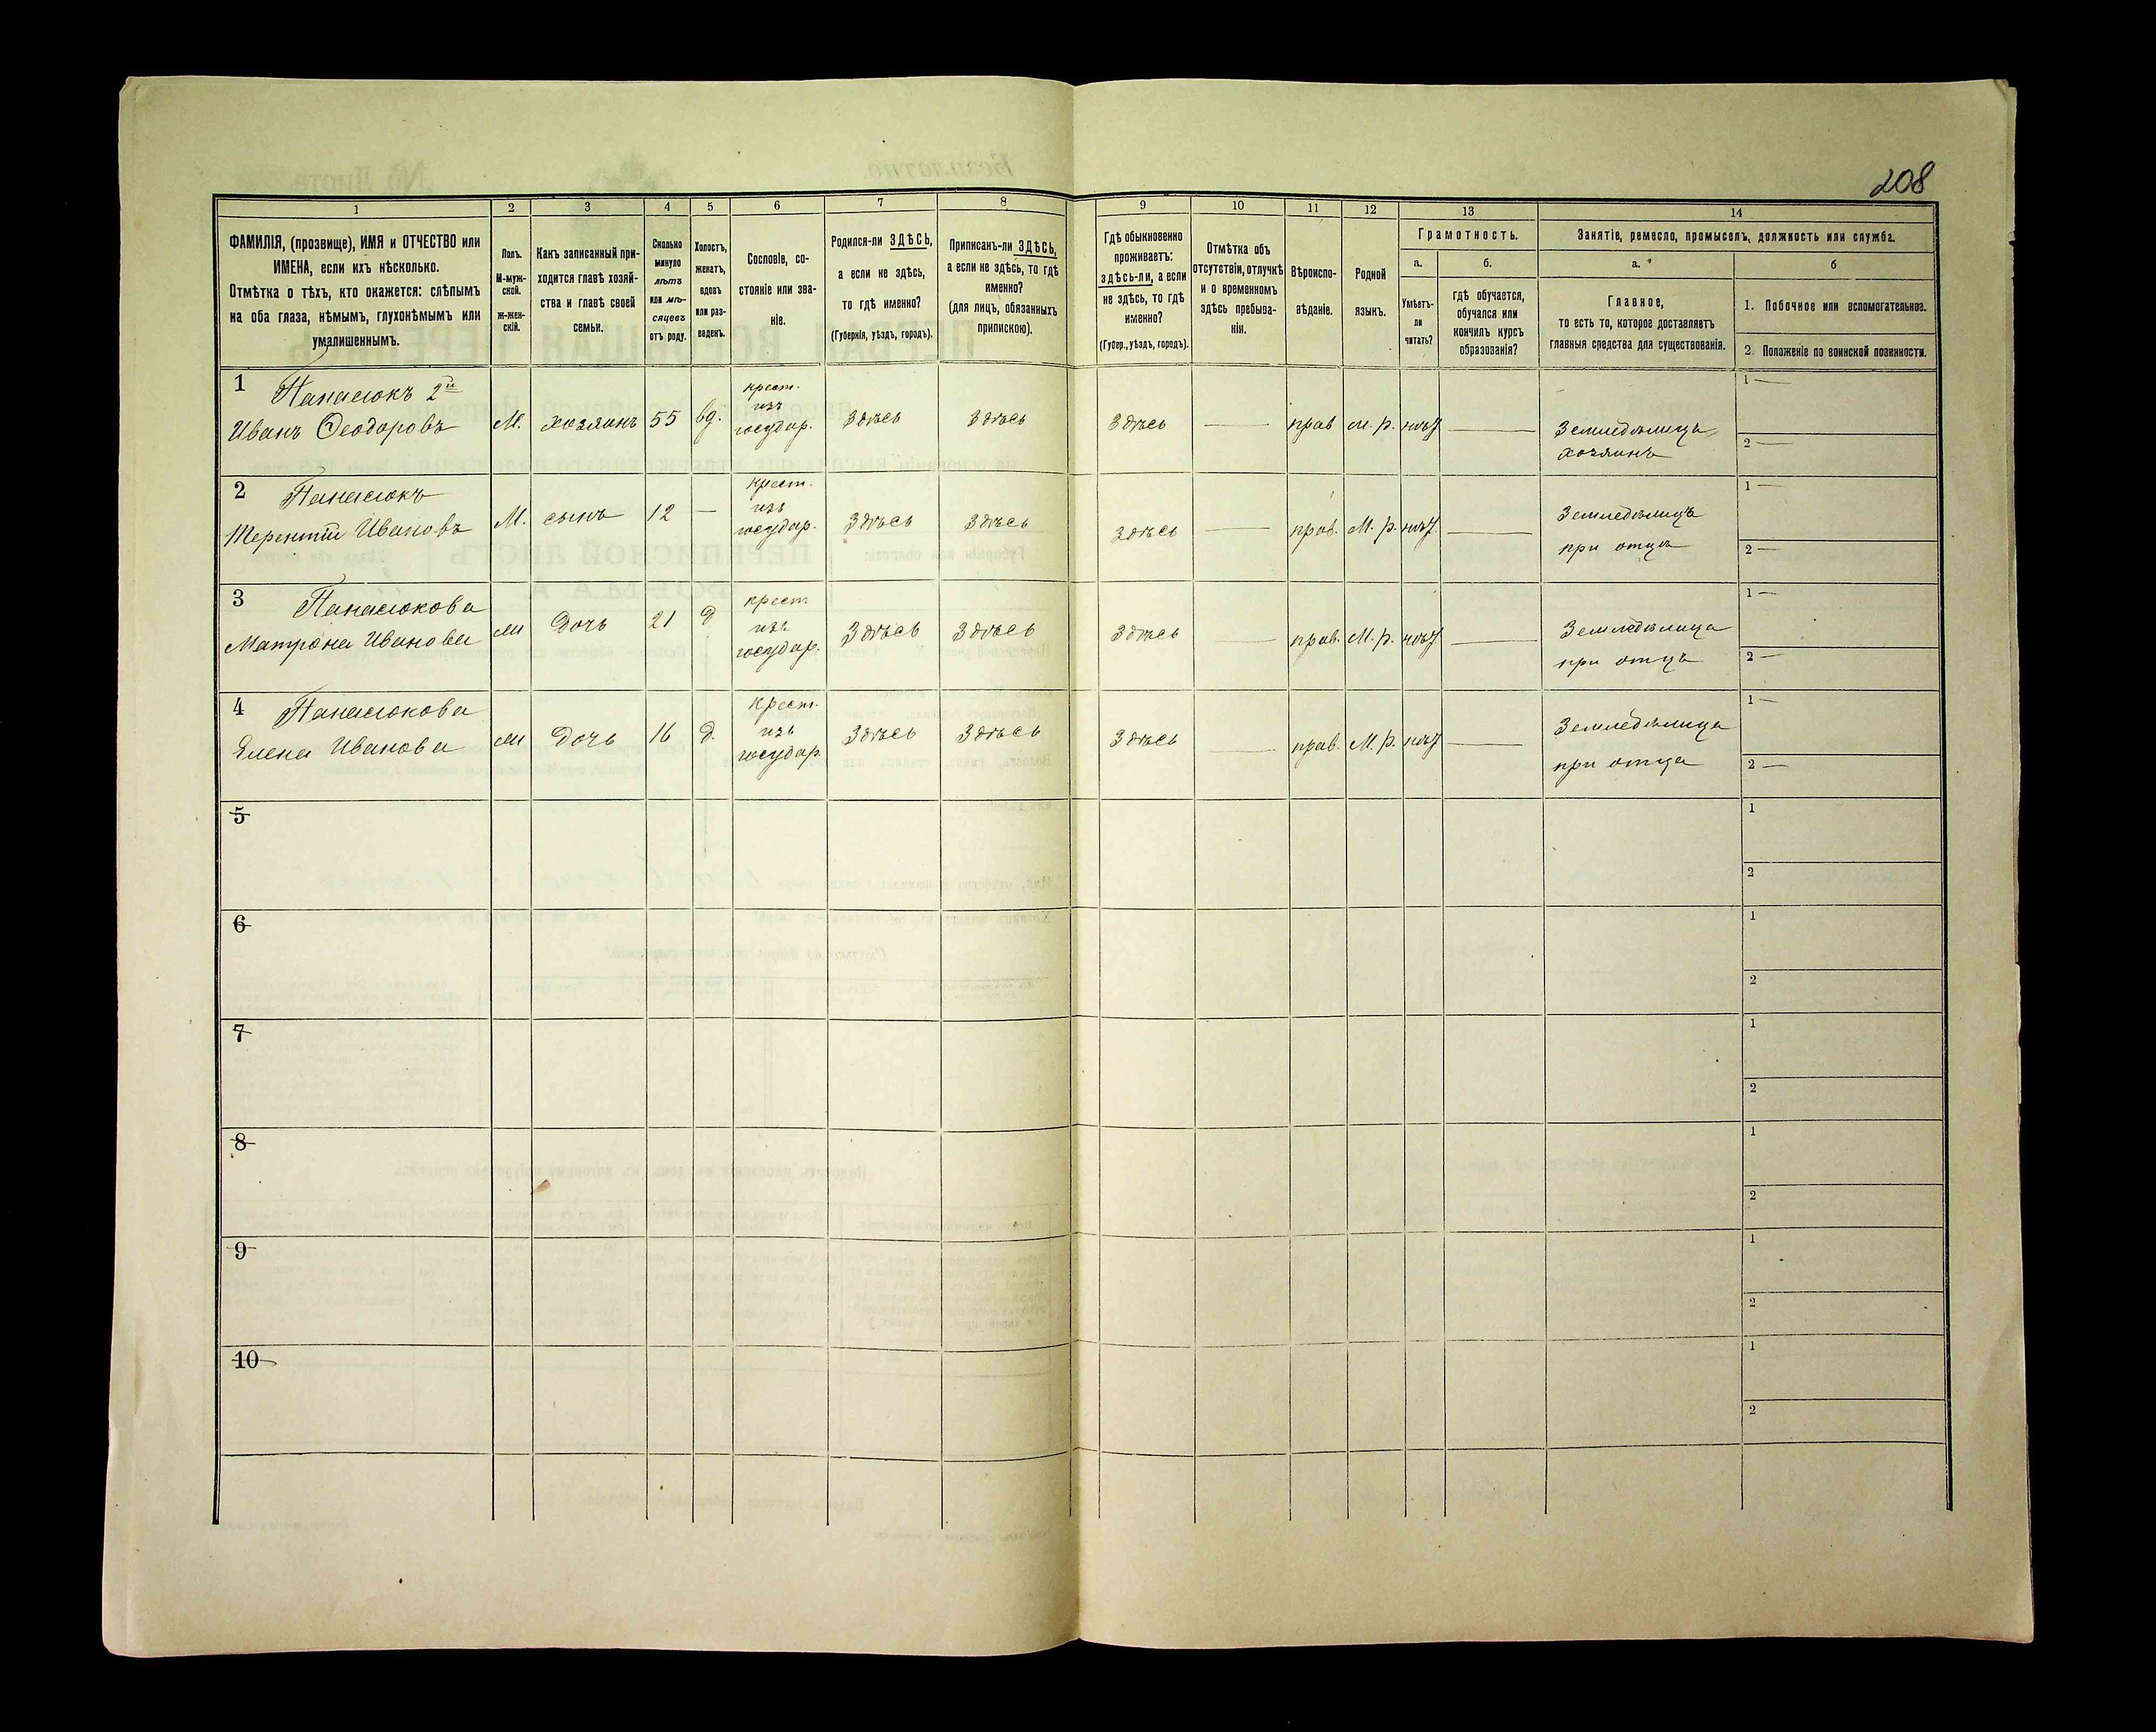 208
1 2 3 4 5 6 7 8 9 10 11 12 13 14
ФАМИЛІЯ, (прозвище), ИМЯ и ОТЧЕСТВО или
ИМЕНА, если ихъ нѣсколько.
Отмѣтка о тѣхъ, кто окажется: слѣпымъ
на оба глаза, нѣмымъ, глухонѣмымъ или
умалишеннымъ.
Полъ.
М-муж-
ской.
ж-жен-
скій.
Какъ записанный при-
ходится главѣ хозяй-
ства и главѣ своей
семьи.
Сколько
минуло
лѣтъ
или мѣ-
сяцевъ
отъ роду.
Холостъ,
женатъ,
вдовъ
или раз-
веденъ.
Сословіе, со-
стояніе или зва-
ніе.
Родился-ли ЗДѢСЬ,
а если не здѣсь,
то гдѣ именно?
(Губернія, уѣздъ, городъ).
Приписанъ-ли ЗДѢСЬ,
а если не здѣсь, то гдѣ
именно?
(для лицъ, обязанныхъ
припискою).
Гдѣ обыкновенно
проживаетъ:
здѣсь-ли, а если
не здѣсь, то гдѣ
именно?
(Губер., уѣздъ, городъ).
Отмѣтка объ
отсутствіи, отлучкѣ
и о временномъ
здѣсь пребыва-
ніи.
Вѣроиспо-
вѣданіе.
Родной
языкъ.
Грамотность.
а.
Умѣетъ-
ли
читать?
б.
гдѣ обучается,
обучался или
кончилъ курсъ
образованія?
Занятіе, ремесло, промыселъ, должность или служба.
а.
Главное,
то есть то, которое доставляетъ
главныя средства для существованія.
б
1. Побочное или вспомогательное.
2. Положеніе по воинской повинности.
1 Панасюкъ 2й
Иванъ Ѳеодоровъ М. хозяинъ 55 вд. крест. изъ государ. Здѣсь Здѣсь Здѣсь — прав М. р. нѣт — Земледѣлецъ хозяинъ 1 — 2 —
2 Панасюкъ
Терентій Ивановъ М. сынъ 12 — крест. изъ государ. Здѣсь Здѣсь Здѣсь — прав. М. р. нѣт — Земледѣлецъ при отцѣ 1 — 2 —
3 Панасюкова
Матрона Иванова ж Дочь 21 д крест. изъ государ. Здѣсь Здѣсь Здѣсь — прав. М. р. нѣт — Земледѣлица при отцѣ 1 — 2 —
4 Панасюкова
Елена Иванова ж Дочь 16 д. Крест. изъ государ. Здѣсь Здѣсь Здѣсь — прав. М. р. нѣт — Земледѣлица при отцѣ 1 — 2 —
5 1
2
6 1
2
7 1
2
8 1
2
9 1
2
10 1
2